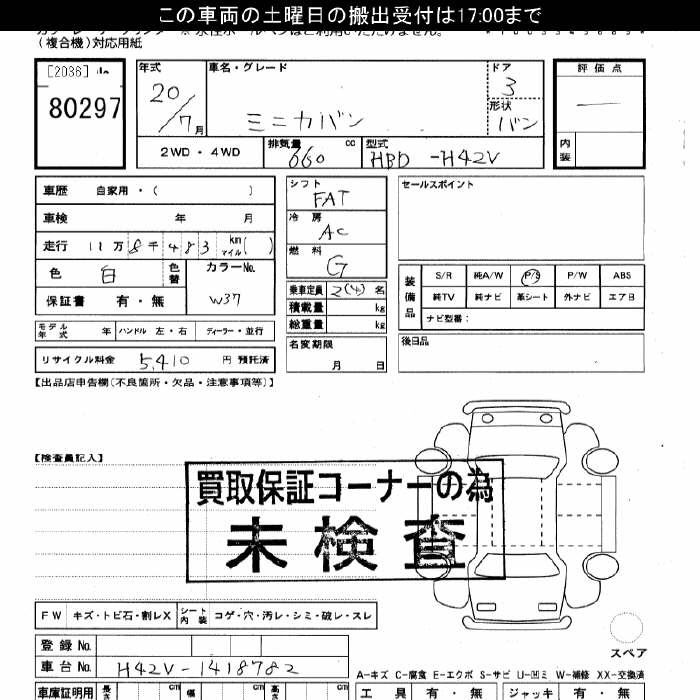 この車両の土曜日の搬出受付は17:00まで
(複合機)対応用紙
[2036]
80297
年式 20/7月
車名・グレード ミニカバン
ドア 3
形状 バン
評価点 —
内装
2WD・4WD
排気量 660 cc
型式 HBD-H42V
車歴 自家用・( )
車検 年 月
走行 11万8千483 km マイル( )
色 白 色替
カラーNo. W37
保証書 有・無
シフト FAT
冷房 AC
燃料 G
乗車定員 2(4)名
積載量 kg
総重量 kg
名変期限 月 日
セールスポイント
装備品 S/R 純A/W P/S P/W ABS
純TV 純ナビ 革シート 外ナビ エアB
ナビ型番:
後日品
モデル年式 年 ハンドル 左・右 ディーラー・並行
リサイクル料金 5,410 円 預託済
【出品店申告欄(不良箇所・欠品・注意事項等)】
【検査員記入】
買取保証コーナーの為
未検査
FW キズ・トビ石・割レX シート内装 コゲ・穴・汚レ・シミ・破レ・スレ
スペア
登録No.
車台No. H42V-1418782
A-キズ C-腐食 E-エクボ S-サビ U-凹ミ W-補修 XX-交換済
車庫証明用 長さ cm 幅 cm 高さ cm
工具 有・無 ジャッキ 有・無